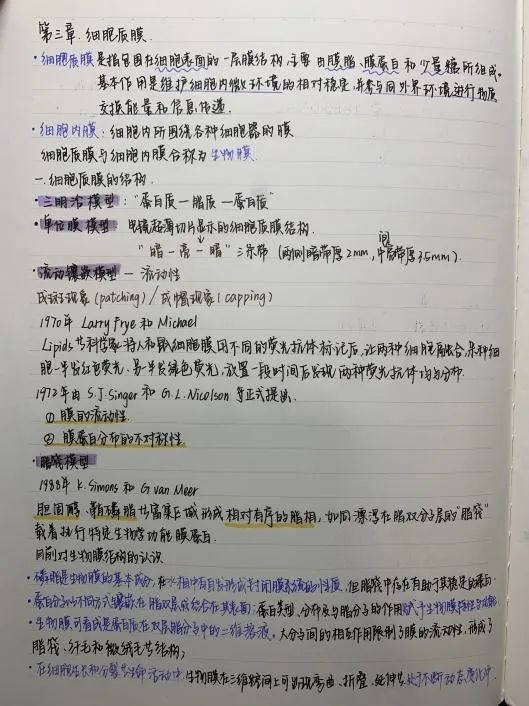 第三章. 细胞质膜
·细胞质膜是指包围在细胞表面的一层膜结构.主要由膜脂、膜蛋白和少量糖所组成.
基本作用是维护细胞内微环境的相对稳定,并参与同外界环境进行物质
交换,能量和信息传递.
·细胞内膜:细胞内所围绕各种细胞器的膜
细胞质膜与细胞内膜合称为生物膜.
一.细胞质膜的结构.
·三明治模型:"蛋白质—脂质—蛋白质"
·单位膜模型 电镜超薄切片显示的细胞质膜结构.
"暗—亮—暗"三条带(两侧暗带厚2mm,中间带厚3.5mm).
·流动镶嵌模型—流动性
成斑现象(patching)/成帽现象(capping)
1970年 Larry Frye 和 Michael
Lipids等科学家将人和鼠细胞膜用不同的荧光抗体标记后,让两种细胞融合,杂种细
胞一半发红色荧光.另一半绿色荧光,放置一段时间后发现两种荧光抗体均匀分布.
1972年由 S.J.Singer 和 G.L.Nicolson 等正式提出.
①膜的流动性.
②膜蛋白分布的不对称性.
·脂筏模型
1988年 K.Simons 和 G.van Meer
胆固醇、鞘磷脂等富集区域形成相对有序的脂相,如同漂浮在脂双分子层的"脂筏"
载着执行特定生物学功能膜蛋白.
目前对生物膜结构的认识
·磷脂是生物膜的基本成分,在水相中有自发形成封闭膜系统的性质,但脂膜中存在有助于其稳定的蛋白.
·蛋白分子以不同方式镶嵌在脂双层或结合在其表面;蛋白类型,分布及与脂分子的作用赋予生物膜特性与功能.
·生物膜可看成是蛋白质在双层脂分子中的二维溶液.大分子间的相互作用限制了膜的流动性,形成了
脂筏、纤毛和微绒毛等结构;
·在细胞生长和分裂等生命活动中.生物膜在三维空间上可出现弯曲、折叠、延伸等,处于不断动态变化中.